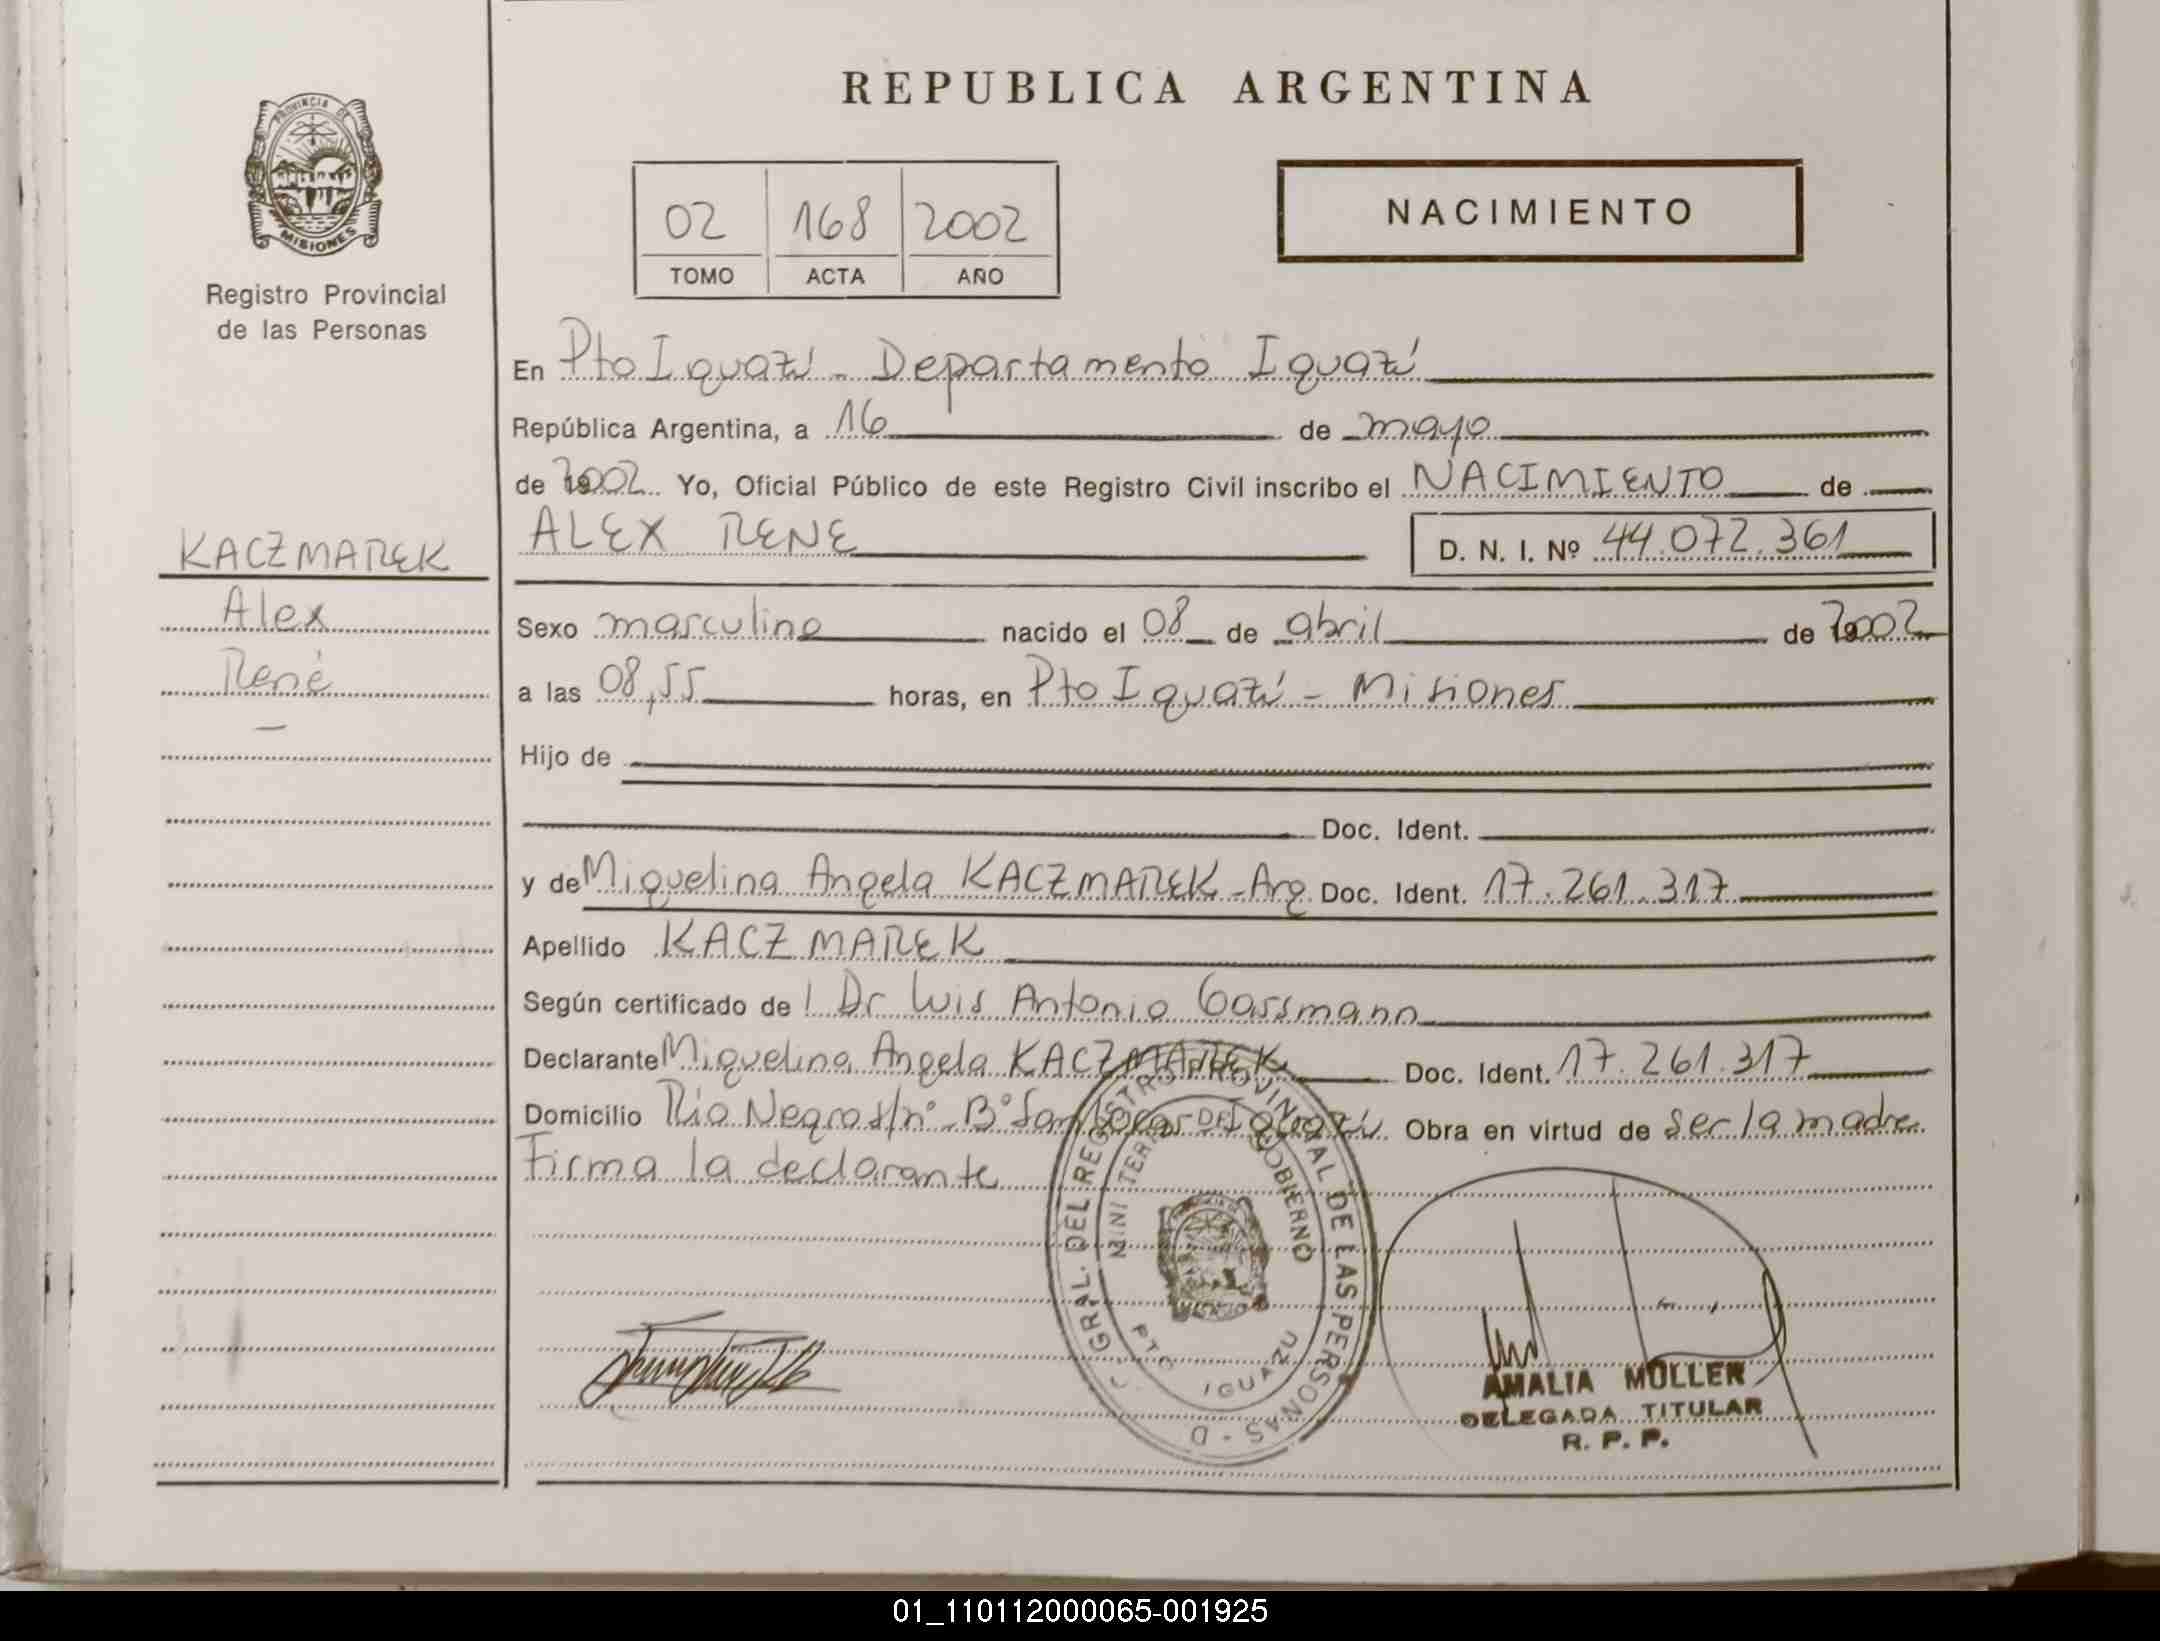 REPUBLICA ARGENTINA
PROVINCIA DE
MISIONES
Registro Provincial
de las Personas
02 168 2002
TOMO ACTA AÑO
NACIMIENTO
En Pto Iguazú - Departamento Iguazú
República Argentina, a 16 de mayo
de 2002 Yo, Oficial Público de este Registro Civil inscribo el NACIMIENTO de
KACZMAREK
ALEX RENE D. N. I. Nº 44.072.361
Alex
Sexo masculino nacido el 08 de abril de 2002
René
a las 08,55 horas, en Pto Iguazú - Misiones
Hijo de
Doc. Ident.
y de Miguelina Angela KACZMAREK - Arg. Doc. Ident. 17.261.317
Apellido KACZMAREK
Según certificado de l Dr Luis Antonio Gassmann
Declarante Miguelina Angela KACZMAREK Doc. Ident. 17.261.317
Domicilio Río Negro s/nº - Bº San Lucas Iguazú Obra en virtud de ser la madre
Firma la declarante
GRAL. DEL REGISTRO PROVINCIAL DE LAS PERSONAS - D
MINISTERIO DE GOBIERNO
PTO IGUAZU
AMALIA MULLER
DELEGADA TITULAR
R. P. P.
01_110112000065-001925